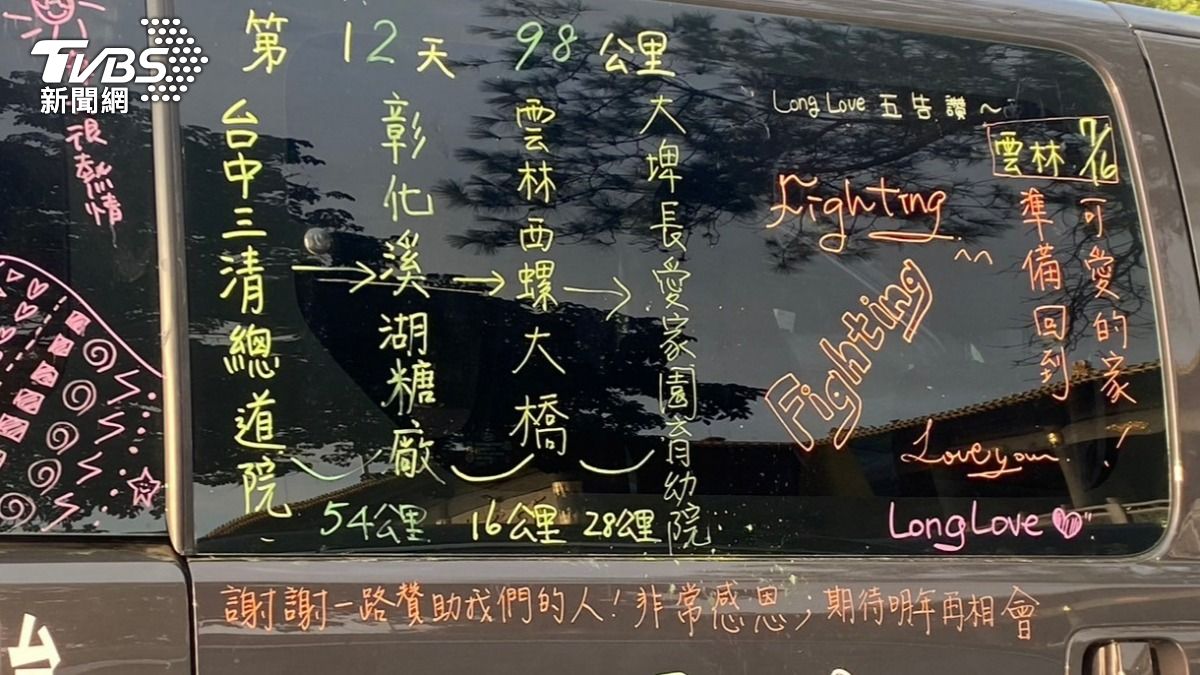 TVBS
新聞網
很熱情
第12天 98公里
台中三清總道院
→彰化溪湖糖廠
→雲林西螺大橋
→大埤長愛家園育幼院
54公里 16公里 28公里
Long Love 五告讚～
7/16
雲林
可愛的家
準備回到
Fighting
^^
Fighting
Love you
Long Love
謝謝一路贊助我們的人！非常感恩，期待明年再相會